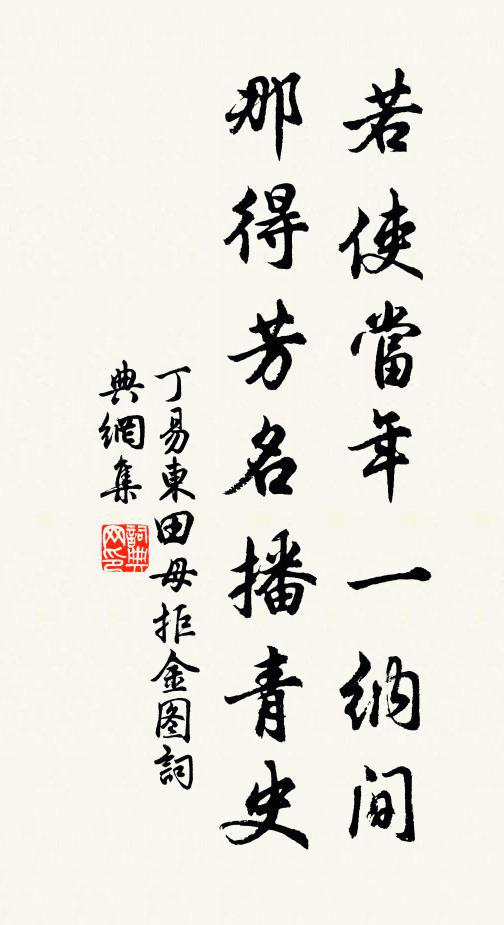 若使當年一納間
那得芳名播青史
丁易東田母拒金图詞
典網集
詞典
网印